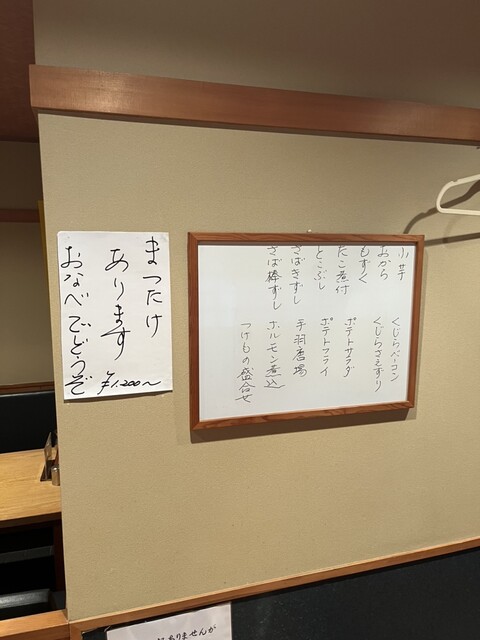 小芋
おから
もずく
たこ煮付
とこぶし
さばきずし
さば棒ずし
くじらベーコン
くじらさえずり
ポテトサラダ
ポテトフライ
手羽唐揚
ホルモン煮込
つけもの盛合せ
まつたけ
あります
おなべでどうぞ
¥1,200〜
ありませんが